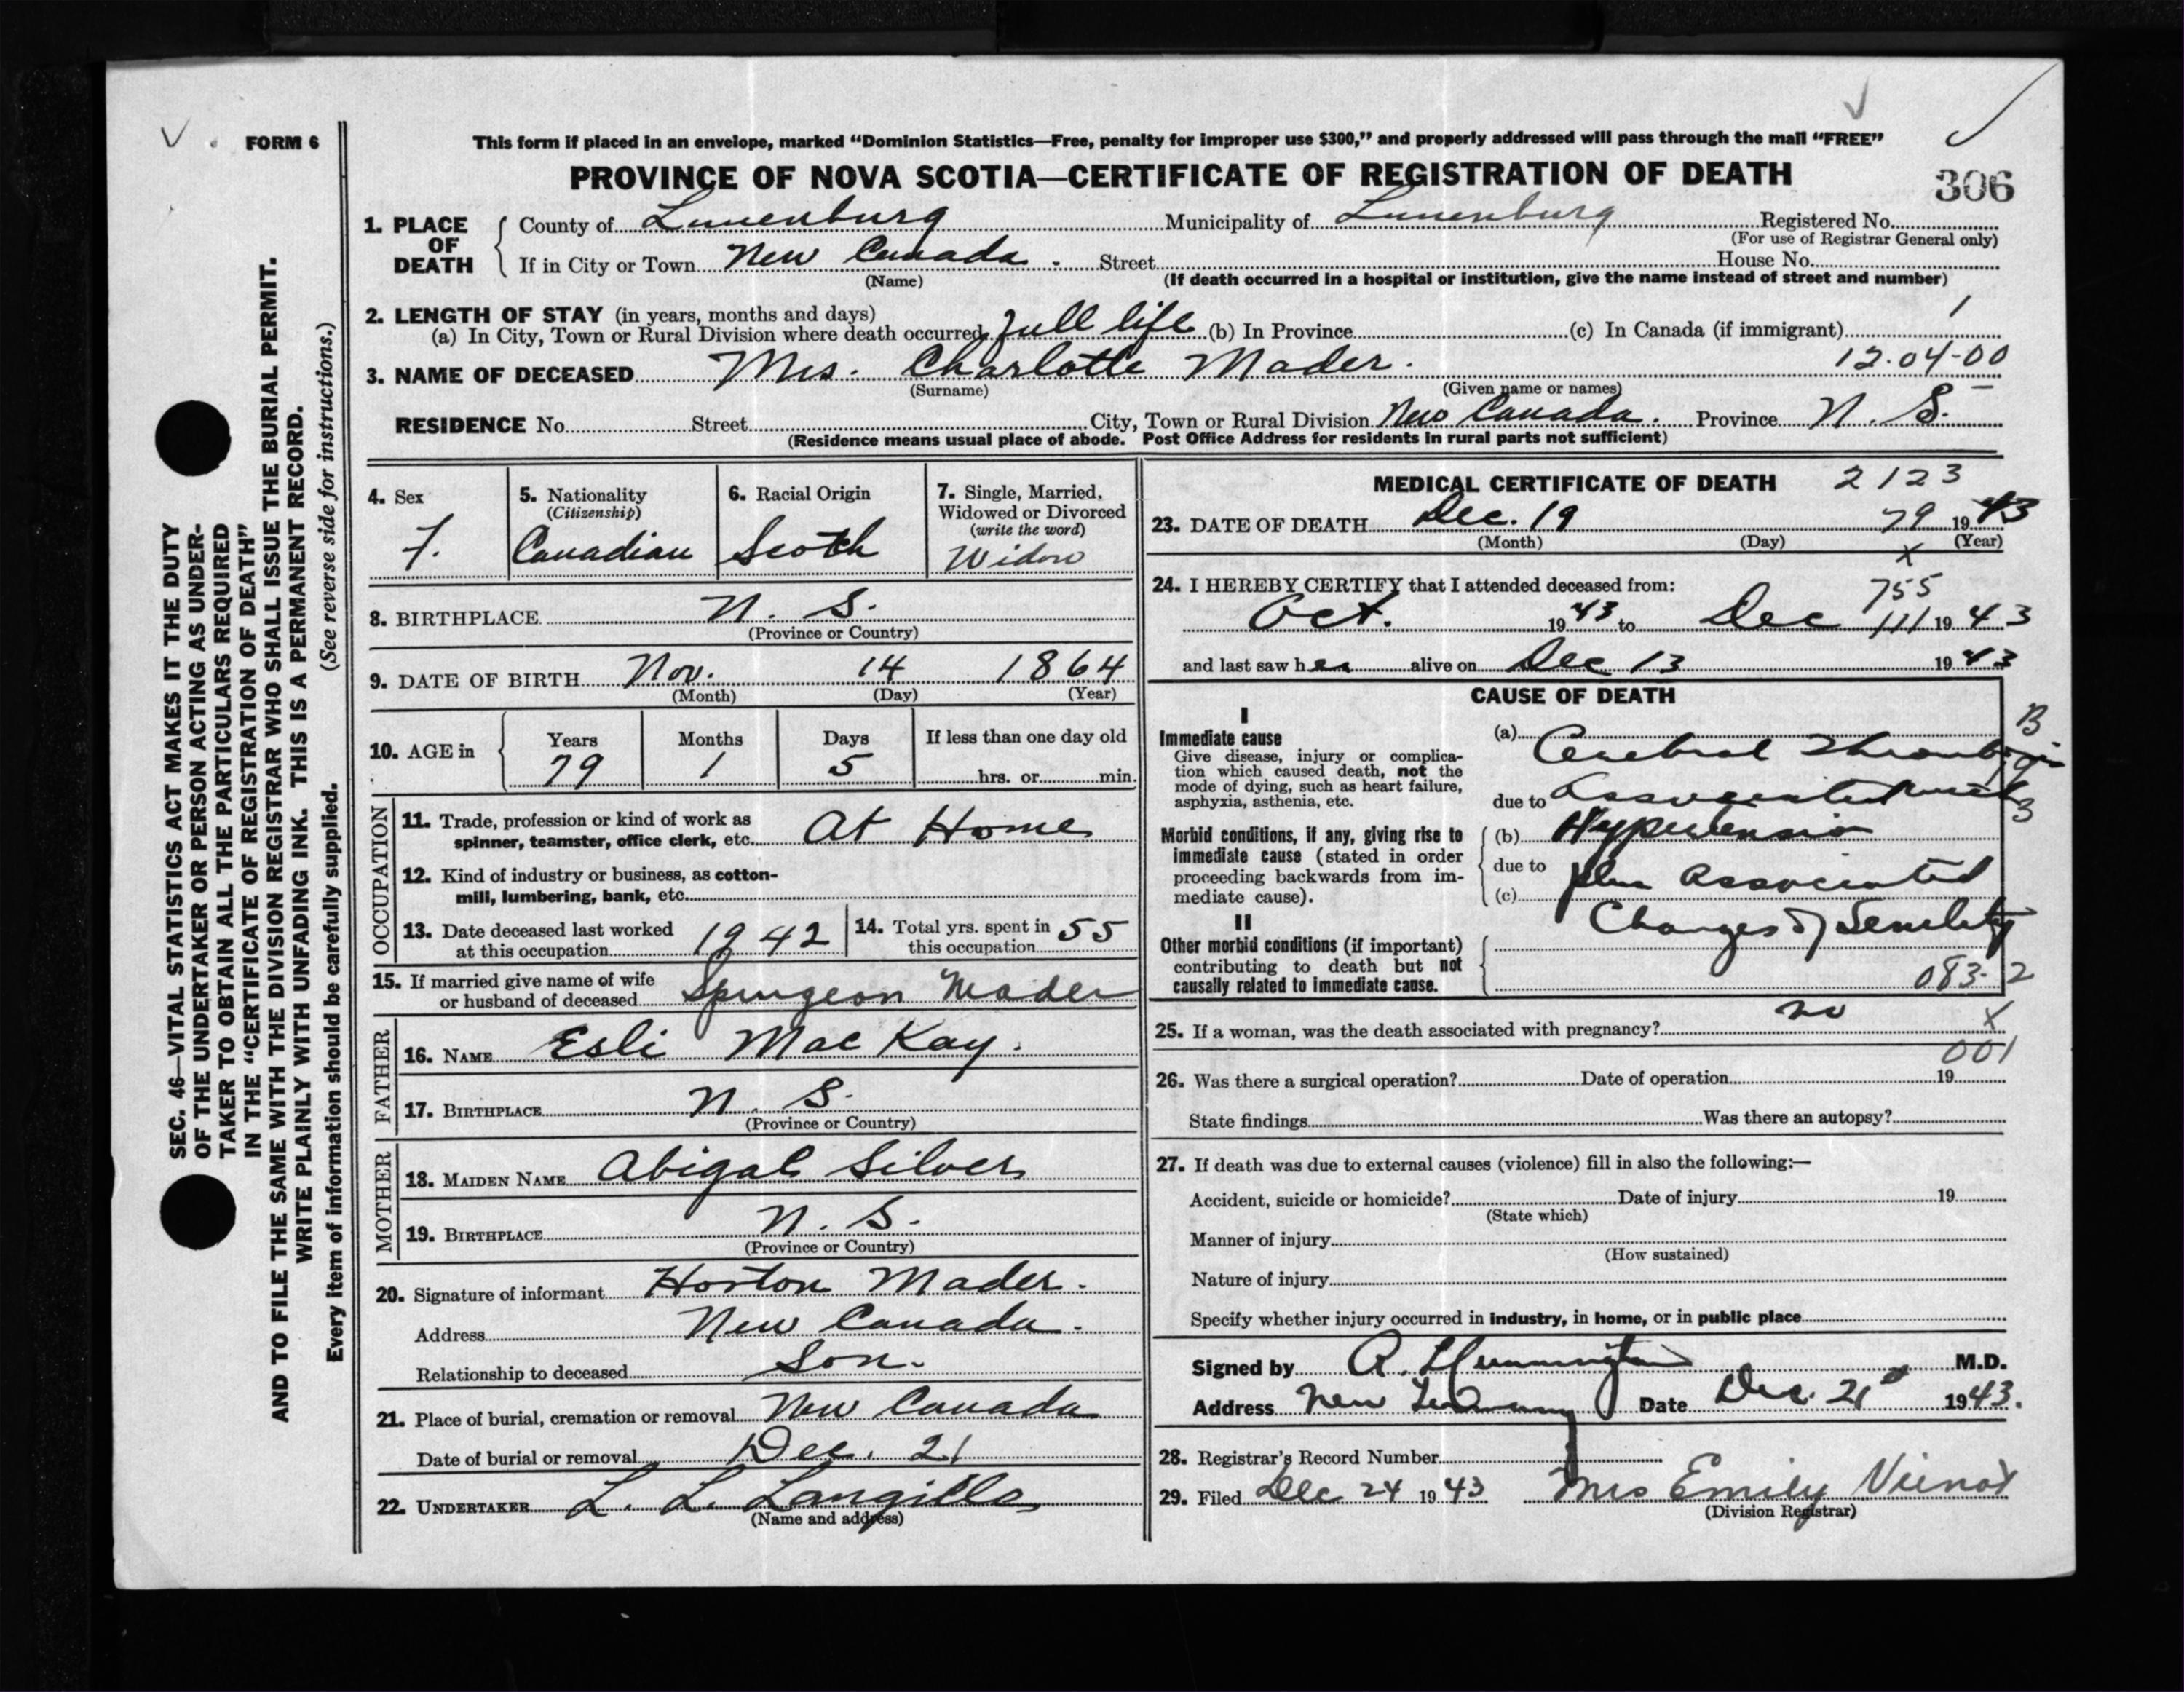 FORM 6
This form if placed in an envelope, marked “Dominion Statistics—Free, penalty for improper use $300,” and properly addressed will pass through the mail “FREE”
PROVINCE OF NOVA SCOTIA—CERTIFICATE OF REGISTRATION OF DEATH
306
1. PLACE OF DEATH
County of Lunenburg Municipality of Lunenburg Registered No.
(For use of Registrar General only)
If in City or Town New Canada. Street House No.
(Name) (If death occurred in a hospital or institution, give the name instead of street and number)
2. LENGTH OF STAY (in years, months and days) 1
(a) In City, Town or Rural Division where death occurred full life (b) In Province (c) In Canada (if immigrant)
3. NAME OF DECEASED Mrs. Charlotte Mader. 12-04-00
(Surname) (Given name or names)
RESIDENCE No. Street City, Town or Rural Division New Canada. Province N. S.
(Residence means usual place of abode. Post Office Address for residents in rural parts not sufficient)
4. Sex
F.
5. Nationality
(Citizenship)
Canadian
6. Racial Origin
Scotch
7. Single, Married,
Widowed or Divorced
(write the word)
Widow
8. BIRTHPLACE N. S.
(Province or Country)
9. DATE OF BIRTH Nov. 14 1864
(Month) (Day) (Year)
10. AGE in
Years Months Days If less than one day old
79 1 5 hrs. or min.
OCCUPATION
11. Trade, profession or kind of work as
spinner, teamster, office clerk, etc. At Home
12. Kind of industry or business, as cotton-
mill, lumbering, bank, etc.
13. Date deceased last worked
at this occupation 1942
14. Total yrs. spent in
this occupation 55
15. If married give name of wife
or husband of deceased Spurgeon Mader
FATHER
16. NAME Esli MacKay.
17. BIRTHPLACE N. S.
(Province or Country)
MOTHER
18. MAIDEN NAME Abigal Silver
19. BIRTHPLACE N. S.
(Province or Country)
20. Signature of informant Horton Mader.
Address New Canada.
Relationship to deceased Son.
21. Place of burial, cremation or removal New Canada
Date of burial or removal Dec. 21
22. UNDERTAKER L. L. Langille
(Name and address)
MEDICAL CERTIFICATE OF DEATH 2123
23. DATE OF DEATH Dec. 19 79 1943
(Month) (Day) (Year)
x
24. I HEREBY CERTIFY that I attended deceased from:
755
Oct. 1943 to Dec 1943
and last saw her alive on Dec 13 1943
CAUSE OF DEATH
I
Immediate cause
Give disease, injury or complica-
tion which caused death, not the
mode of dying, such as heart failure,
asphyxia, asthenia, etc.
(a) Cerebral Thrombosis
due to Associated with
Morbid conditions, if any, giving rise to
immediate cause (stated in order
proceeding backwards from im-
mediate cause).
(b) Hypertension
due to
(c) plus Associated
Changes of Senility
II
Other morbid conditions (if important)
contributing to death but not
causally related to immediate cause.
083-2
25. If a woman, was the death associated with pregnancy? no X
001
26. Was there a surgical operation? Date of operation 19
State findings Was there an autopsy?
27. If death was due to external causes (violence) fill in also the following:—
Accident, suicide or homicide? Date of injury 19
(State which)
Manner of injury
(How sustained)
Nature of injury
Specify whether injury occurred in industry, in home, or in public place
Signed by M.D.
Address New Date Dec. 21 1943.
28. Registrar's Record Number
29. Filed Dec 24 1943 Mrs Emily Vienot
(Division Registrar)
SEC. 46—VITAL STATISTICS ACT MAKES IT THE DUTY
OF THE UNDERTAKER OR PERSON ACTING AS UNDER-
TAKER TO OBTAIN ALL THE PARTICULARS REQUIRED
IN THE “CERTIFICATE OF REGISTRATION OF DEATH”
AND TO FILE THE SAME WITH THE DIVISION REGISTRAR WHO SHALL ISSUE THE BURIAL PERMIT.
WRITE PLAINLY WITH UNFADING INK. THIS IS A PERMANENT RECORD.
Every item of information should be carefully supplied. (See reverse side for instructions.)